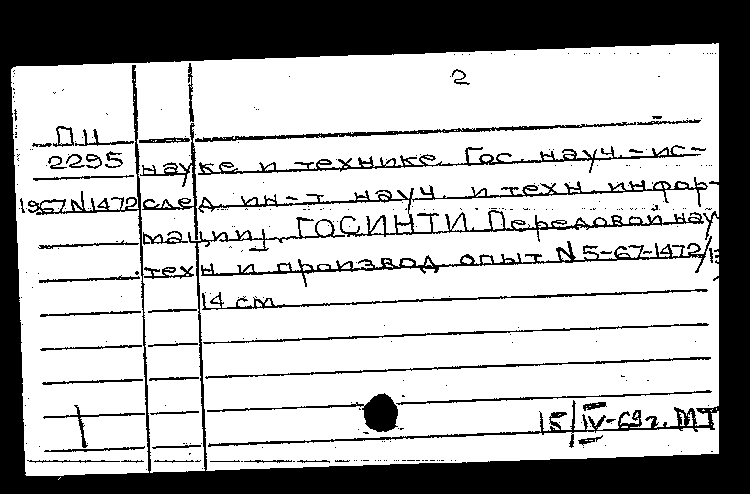 2
П 11
2295 науке и технике. Гос. науч.-ис-
1967 N1472 след. ин-т науч. и техн. инфор-
мации]. ГОСИНТИ. Передовой нау
техн и производ опыт N 5-67-1472/
14 см.
15/IV-69г. МТ